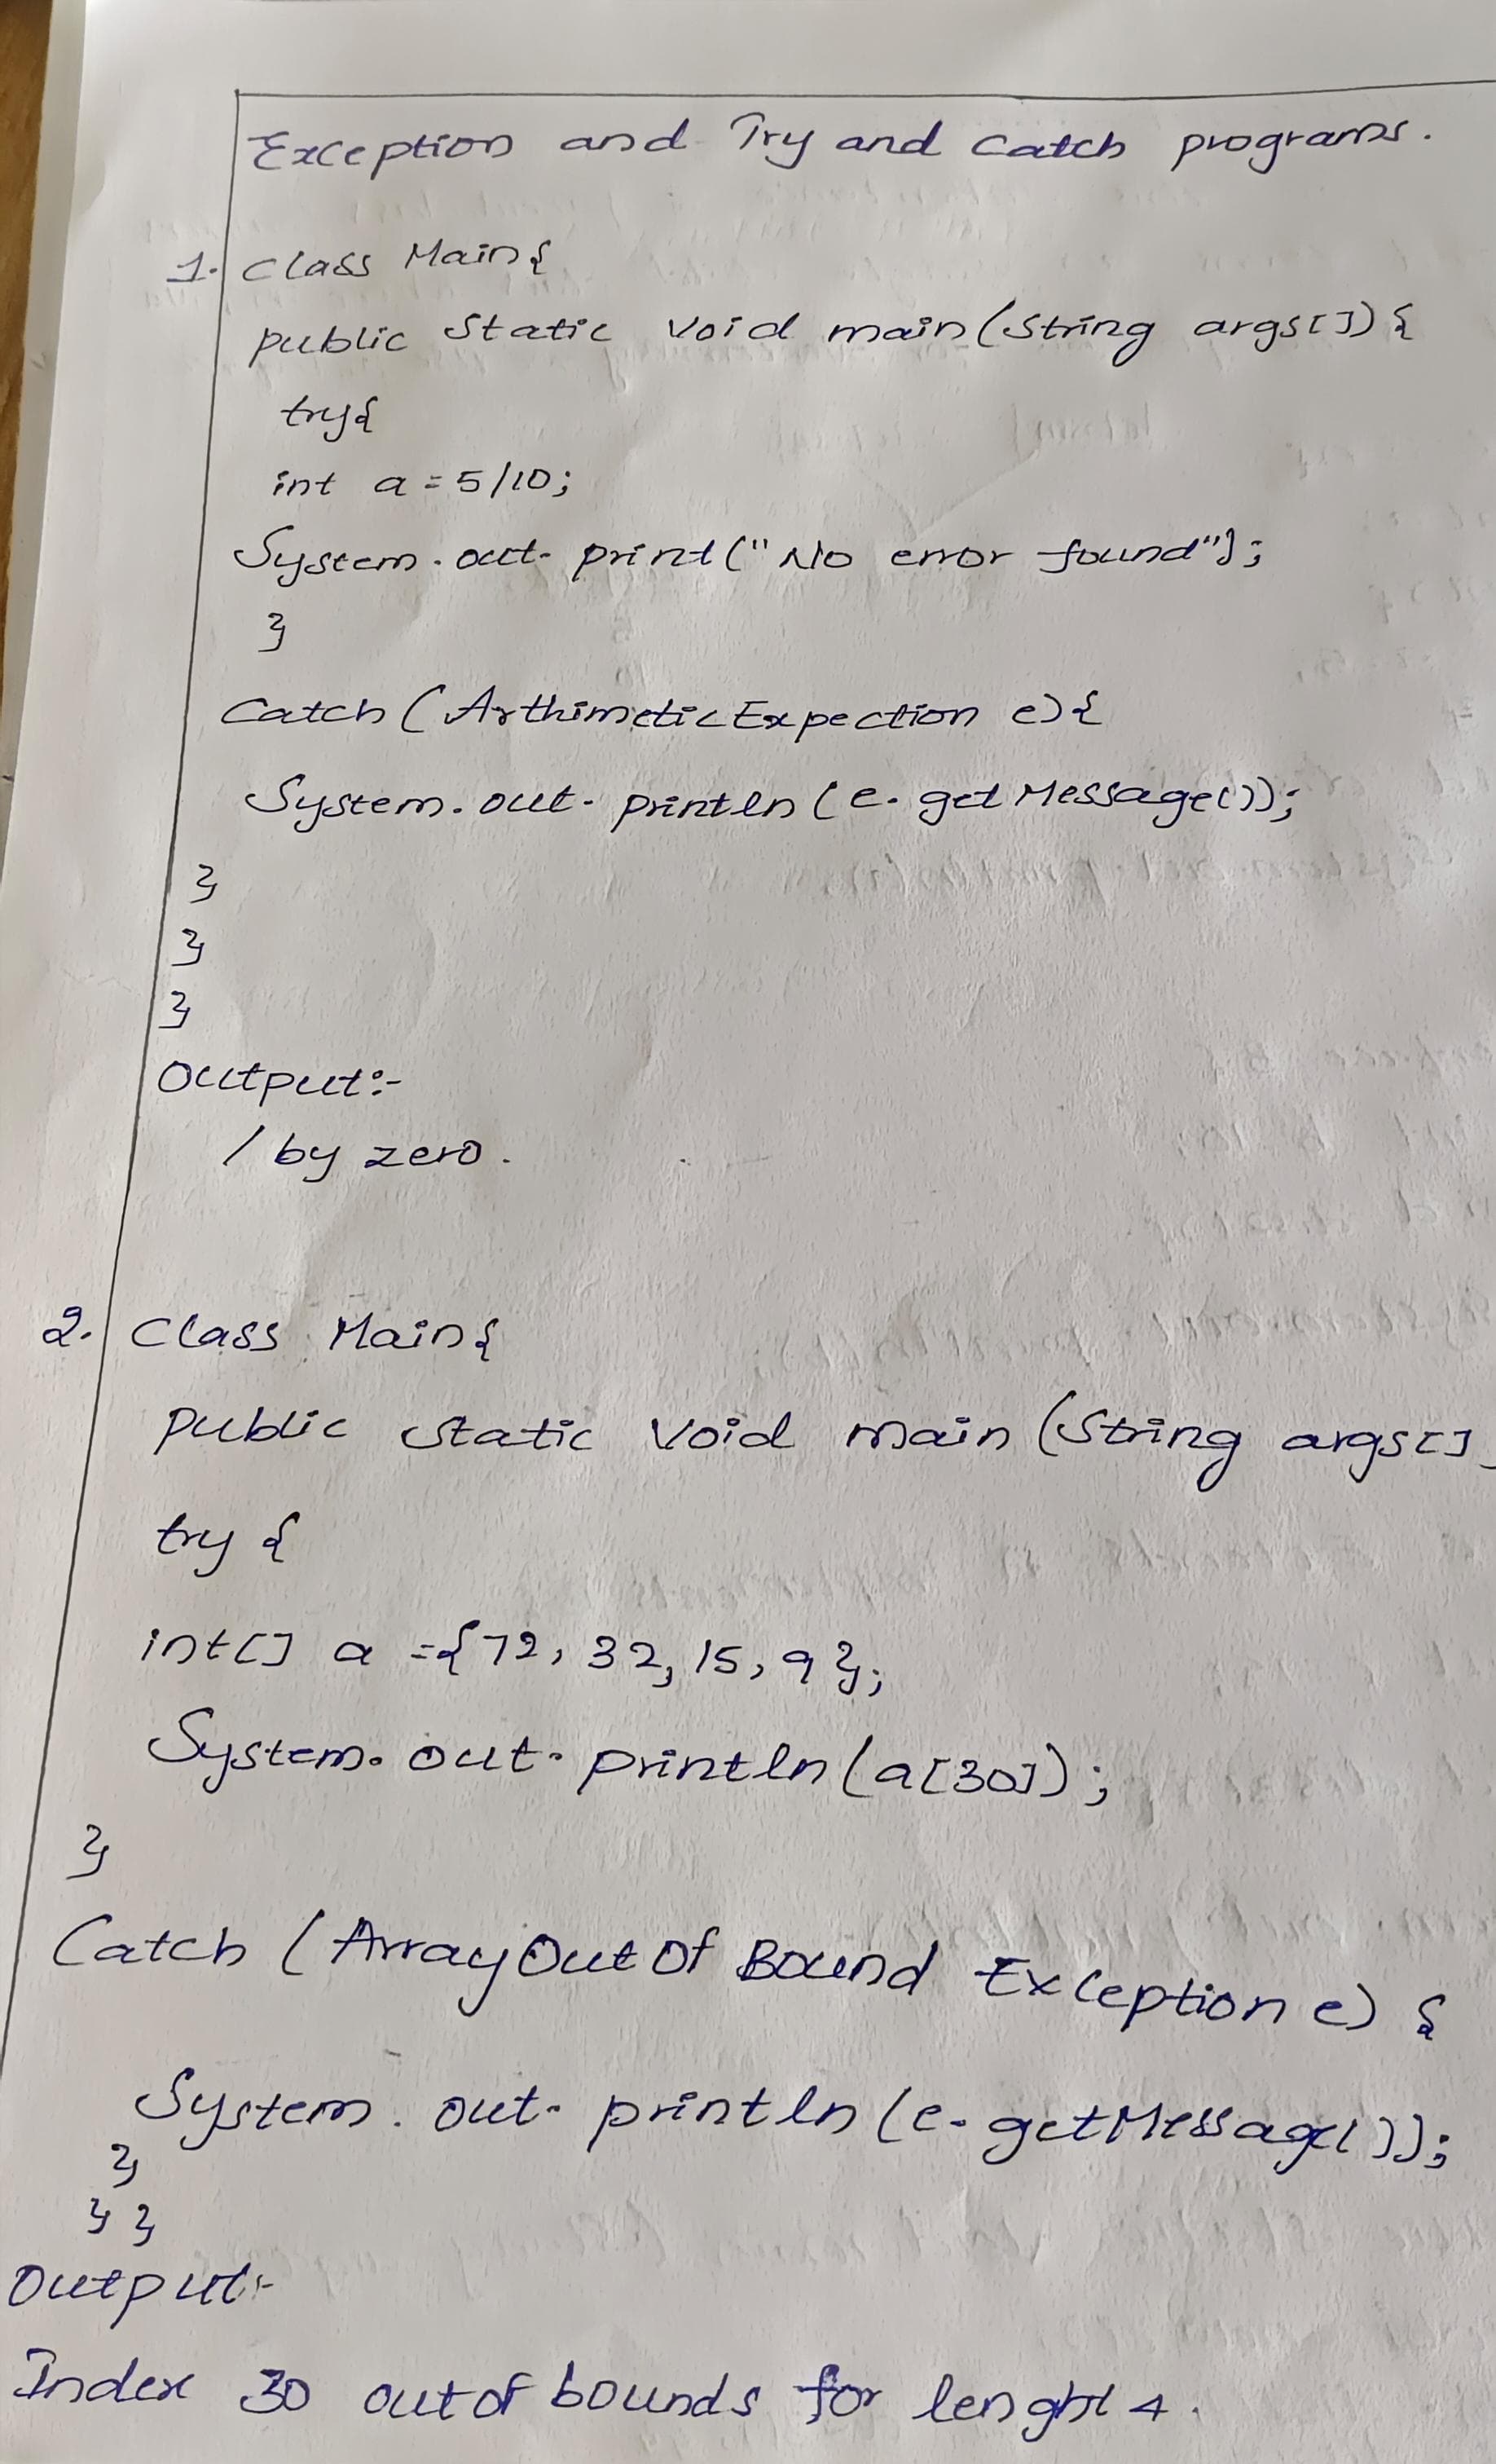 Exception and Try and Catch programs.
1. Class Main{
public static void main(String args[]) {
try{
int a = 5/10;
System.out.print("No error found");
}
Catch (ArthimeticExpection e){
System.out.println(e.getMessage());
}
}
}
Output:-
/ by zero.
2. Class Main{
public static void main (String args[]
try {
int[] a ={72, 32, 15, 9};
System.out.println(a[30]);
}
Catch (ArrayOutOf Bound Exception e) {
System.out.println(e.getMessage());
}
} }
Output:-
Index 30 out of bounds for lenght 4.